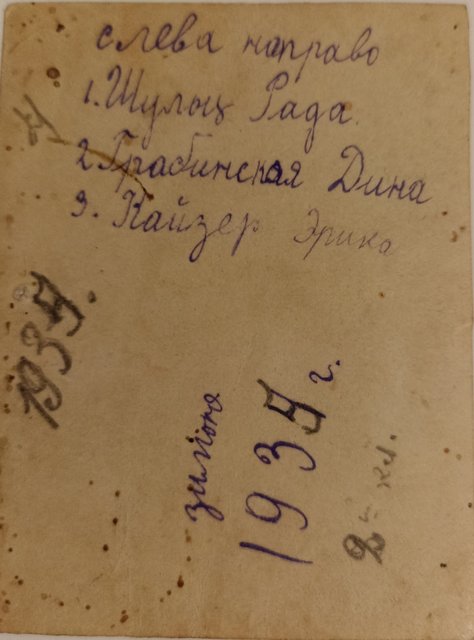 слева направо
1. Шульц Рада
2. Грабинская Дина
3. Кайзер Эрика
1934.
зимою
1934 г.
2й кл.